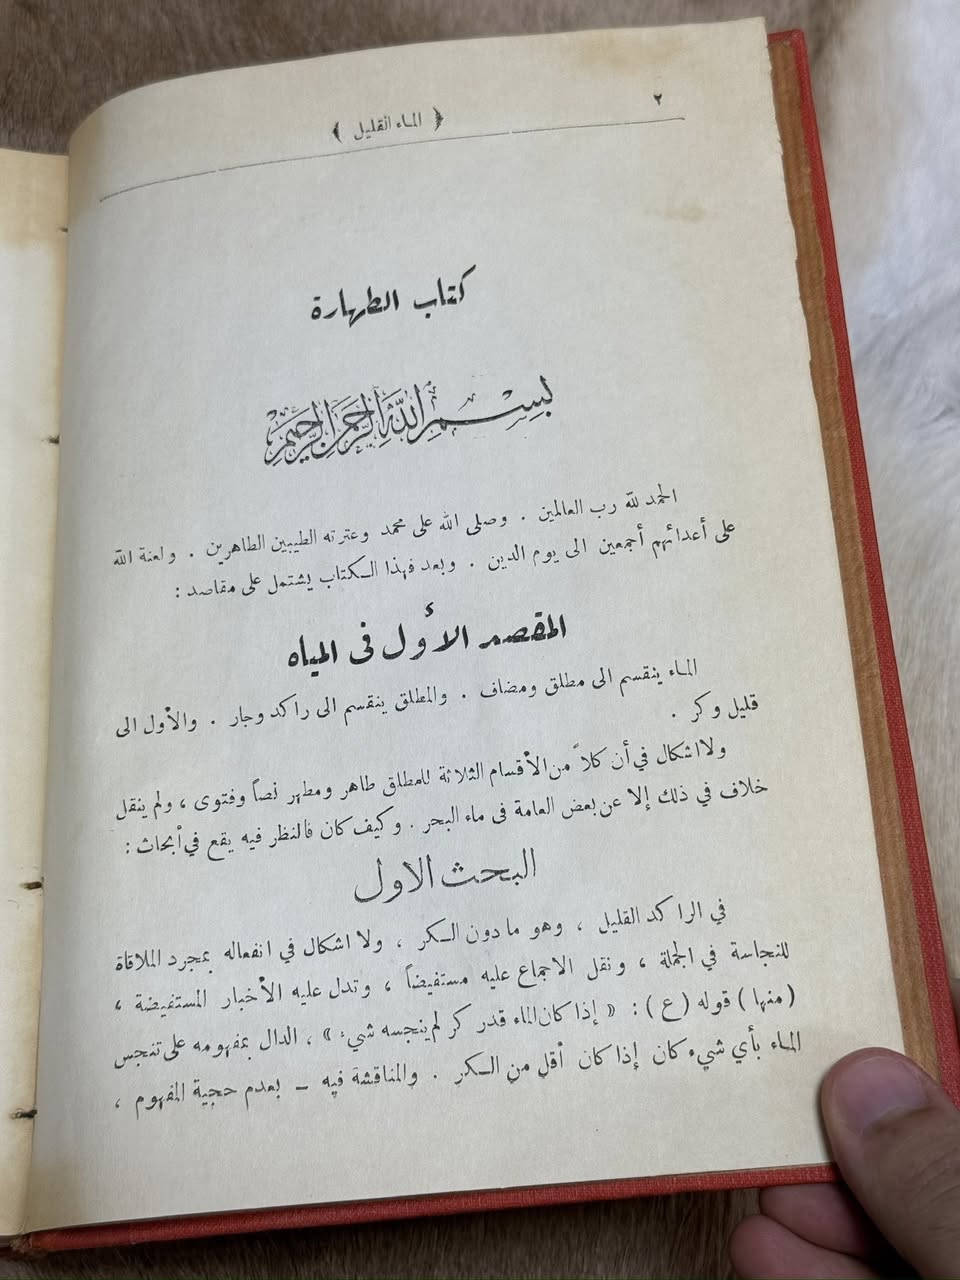 ٢
﴿ الماء القليل ﴾
كتاب الطهارة
بِسْمِ اللَّهِ الرَّحْمَنِ الرَّحِيمِ
الحمد لله رب العالمين . وصلى الله على محمد وعترته الطيبين الطاهرين . ولعنة الله
على أعدائهم أجمعين الى يوم الدين . وبعد فهذا الكتاب يشتمل على مقاصد :
المقصد الأول فى المياه
الماء ينقسم الى مطلق ومضاف . والمطلق ينقسم الى راكد وجار . والأول الى
قليل وكر .
ولا اشكال في أن كلاً من الأقسام الثلاثة للمطلق طاهر ومطهر نصاً وفتوى ، ولم ينقل
خلاف في ذلك إلا عن بعض العامة فى ماء البحر . وكيف كان فالنظر فيه يقع في أبحاث :
البحث الاول
في الراكد القليل ، وهو ما دون الكر ، ولا اشكال في انفعاله بمجرد الملاقاة
للنجاسة في الجملة ، ونقل الاجماع عليه مستفيضاً ، وتدل عليه الأخبار المستفيضة ،
( منها ) قوله ( ع ) : « إذا كان الماء قدر كر لم ينجسه شيء » ، الدال بمفهومه على تنجس
الماء بأي شيء كان إذا كان أقل من الكر . والمناقشة فيه – بعدم حجية المفهوم ،